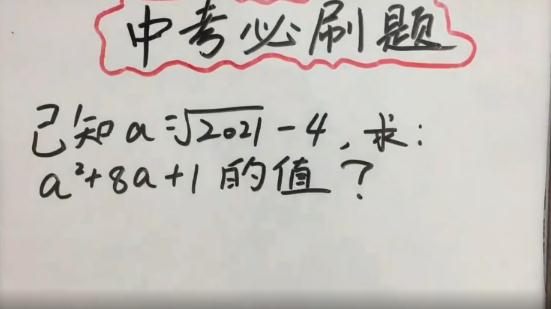 中考必刷题
已知a=√2021-4,求:
a²+8a+1的值?